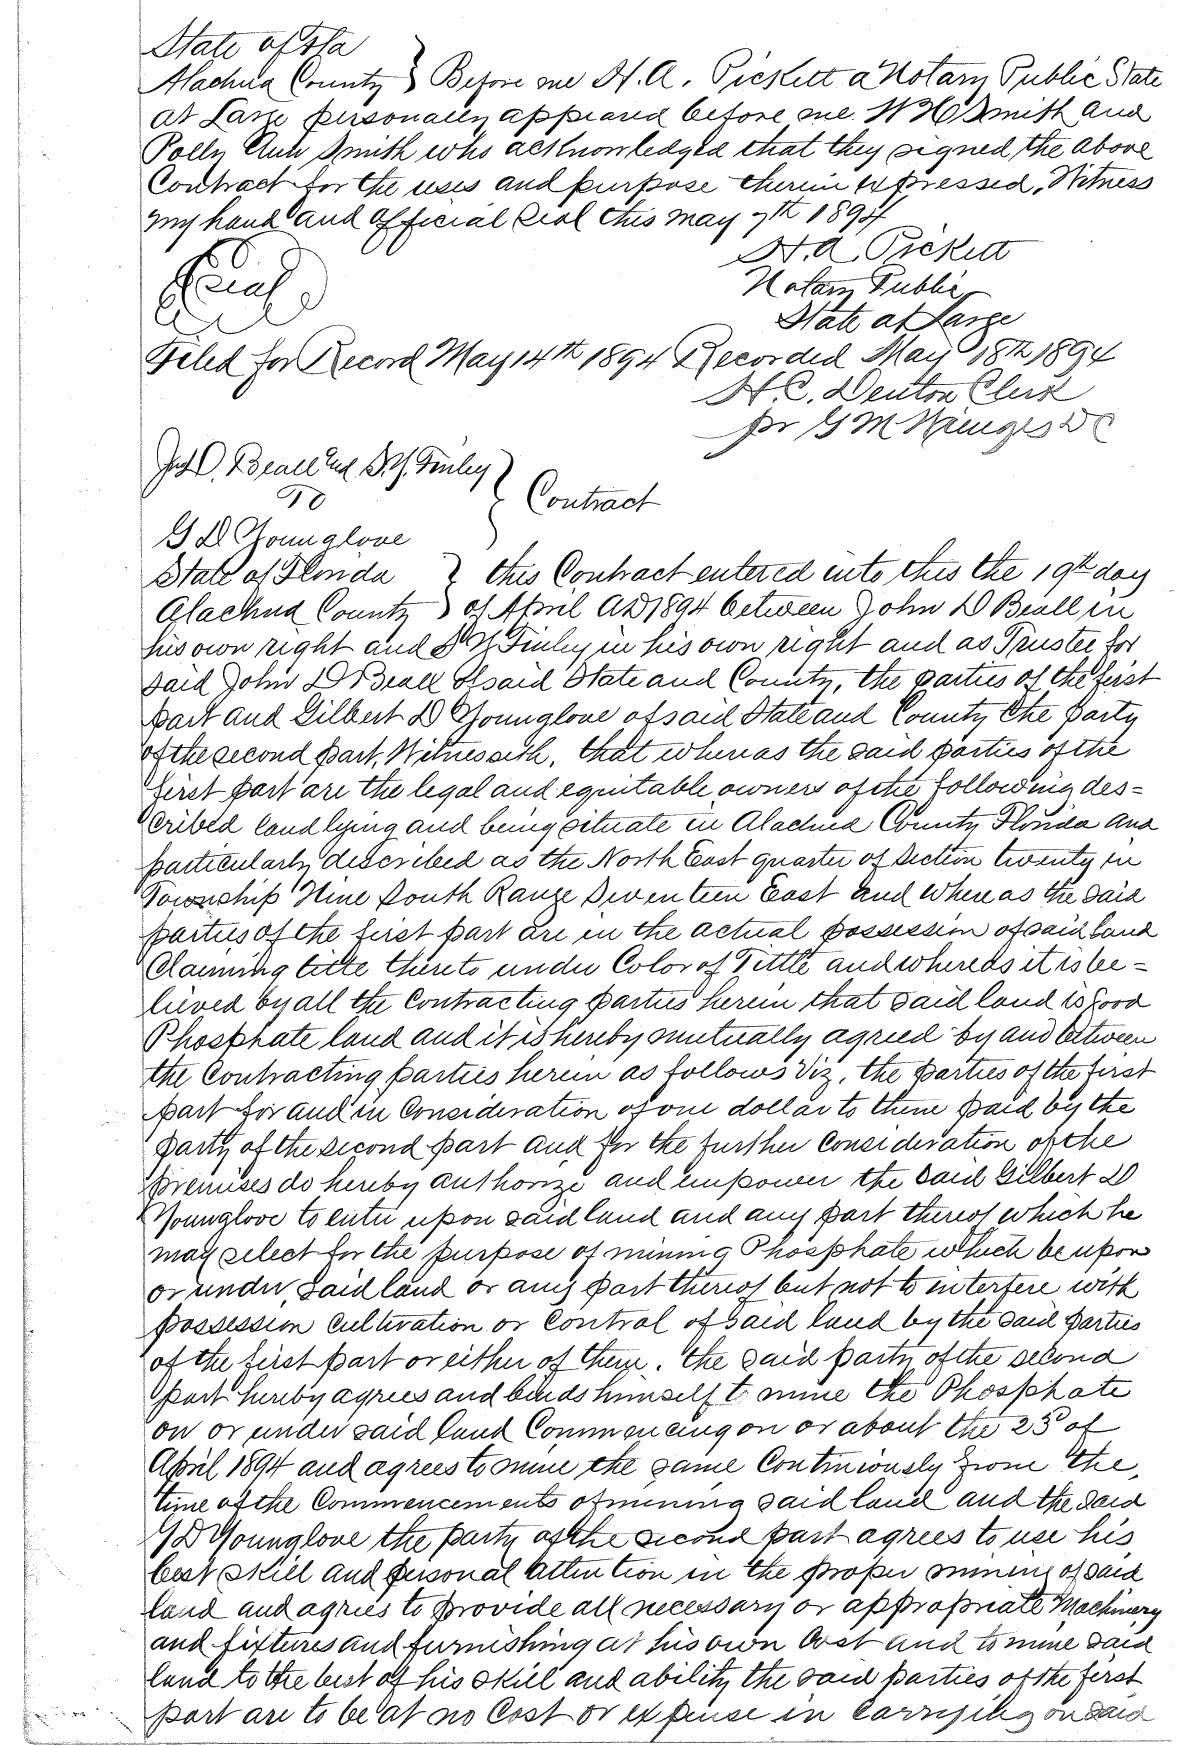 State of Fla
Alachua County } Before me H. A. Pickett a Notary Public State
at Large personally appeared before me W H Smith and
Polly Ann Smith who acknowledged that they signed the above
Contract for the uses and purpose therein expressed, Witness
my hand and official Seal this May 7th 1894
H. A. Pickett
(Seal)
Notary Public
State at Large
Filed for Record May 14th 1894 Recorded May 18th 1894
H. C. Denton Clerk
pr G M DC
Jno D. Beall and S. Y. Finley
To } Contract
G D Younglove
State of Florida } this Contract entered into this the 19th day
Alachua County } of April AD 1894 between John D Beall in
his own right and S Y Finley in his own right and as Trustee for
said John D Beall of said State and County, the parties of the first
part and Gilbert D Younglove of said State and County the party
of the second part, Witnesseth, that whereas the said parties of the
first part are the legal and equitable owners of the following des=
cribed land lying and being situate in Alachua County Florida and
particularly described as the North East quarter of Section twenty in
Township Nine South Range Seventeen East and where as the said
parties of the first part are in the actual possession of said land
Claiming title thereto under Color of Tittle and whereas it is be=
lieved by all the Contracting parties herein that said land is good
Phosphate land and it is hereby mutually agreed by and between
the Contracting parties herein as follows Viz, the parties of the first
part for and in Consideration of one dollar to them paid by the
party of the second part and for the further Consideration of the
premises do hereby authorize and empower the said Gilbert D
Younglove to enter upon said land and any part thereof which he
may select for the purpose of mining Phosphate which be upon
or under, said land or any part thereof but not to interfere with
possession cultivation or control of said land by the said parties
of the first part or either of them. the said party of the second
part hereby agrees and binds himself to mine the Phosphate
on or under said land Commencing on or about the 23d of
April 1894 and agrees to mine the same Continiously from the
time of the Commencements of mining said land and the said
G D Younglove the party of the second part agrees to use his
best skill and personal attention in the proper mining of said
land and agrees to provide all necessary or appropriate Machinery
and fixtures and furnishing at his own Cost and to mine said
land to the best of his skill and ability the said parties of the first
part are to be at no Cost or expense in carrying on said